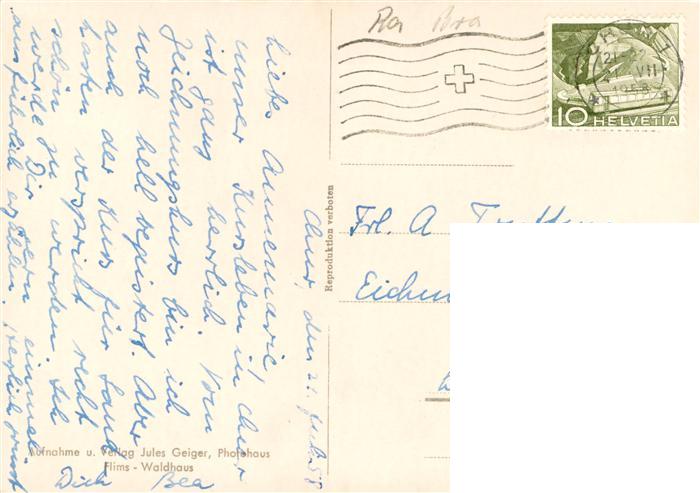 Chur, den 21. Juli 58
Liebes Annemarie!
unser Kursleben in Chur
ist ganz herrlich. Vom
Zeichnungskurs bin ich
noch hell begistert. Aber
auch der Kurs für Sand
kasten verspricht recht
schön zu werden. Ich
werde Dir gern einmal
ausführlich erzählen. Herzlich grüsst
Dich Bea
Aufnahme u. Verlag Jules Geiger, Photohaus
Flims - Waldhaus
Reproduktion verboten
CHUR 1
21
VII
1958
10 HELVETIA
Frl. A
Eichen